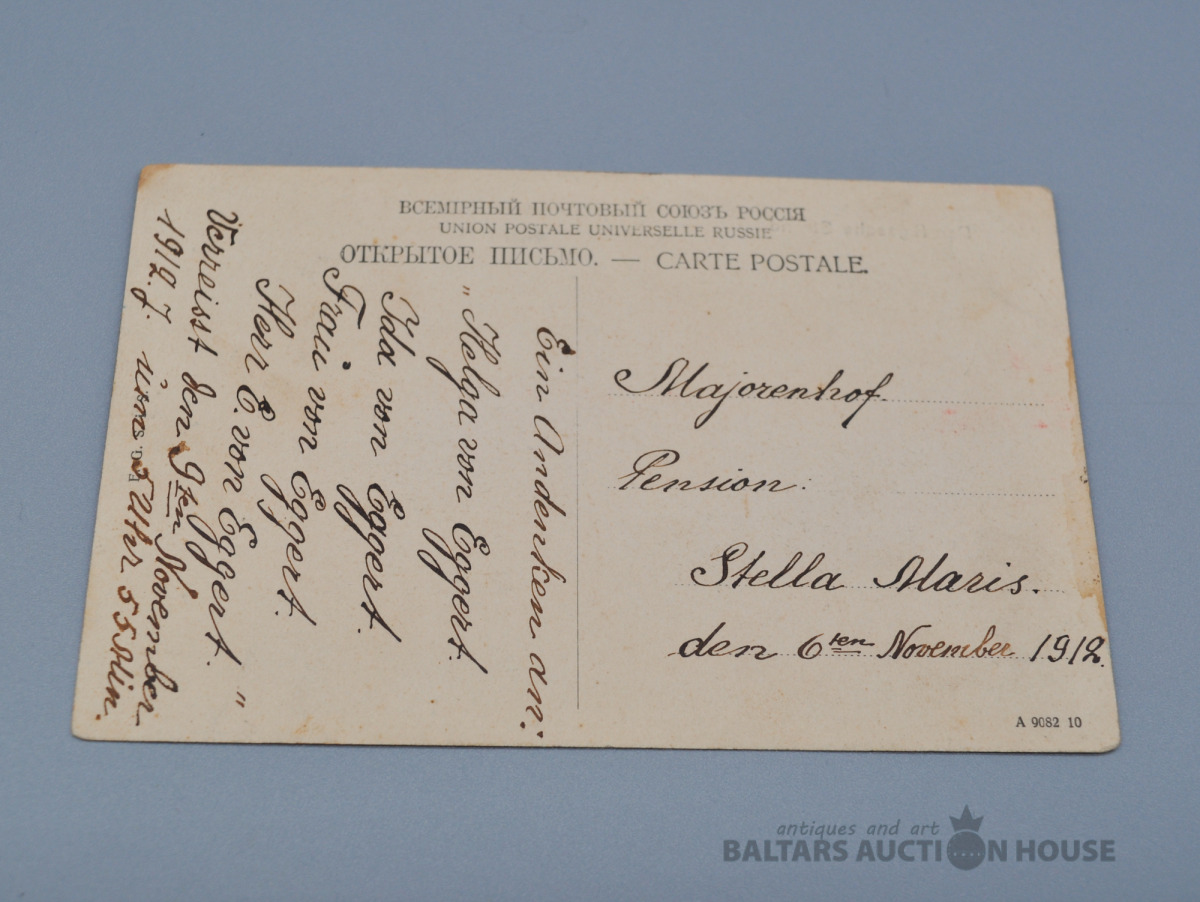 ВСЕМІРНЫЙ ПОЧТОВЫЙ СОЮЗЪ РОССІЯ
UNION POSTALE UNIVERSELLE RUSSIE
ОТКРЫТОЕ ПИСЬМО. — CARTE POSTALE.
Ein Andenken an:
"Helga von Eggert.
Ida von Eggert.
Frau von Eggert.
Herr E. von Eggert."
Verreisst den 9ten November
1912. J. um 5 Uhr 55 Min.
Majorenhof.
Pension:
Stella Maris.
den 6ten November 1912.
A 9082 10
antiques and art
BALTARS AUCTION HOUSE